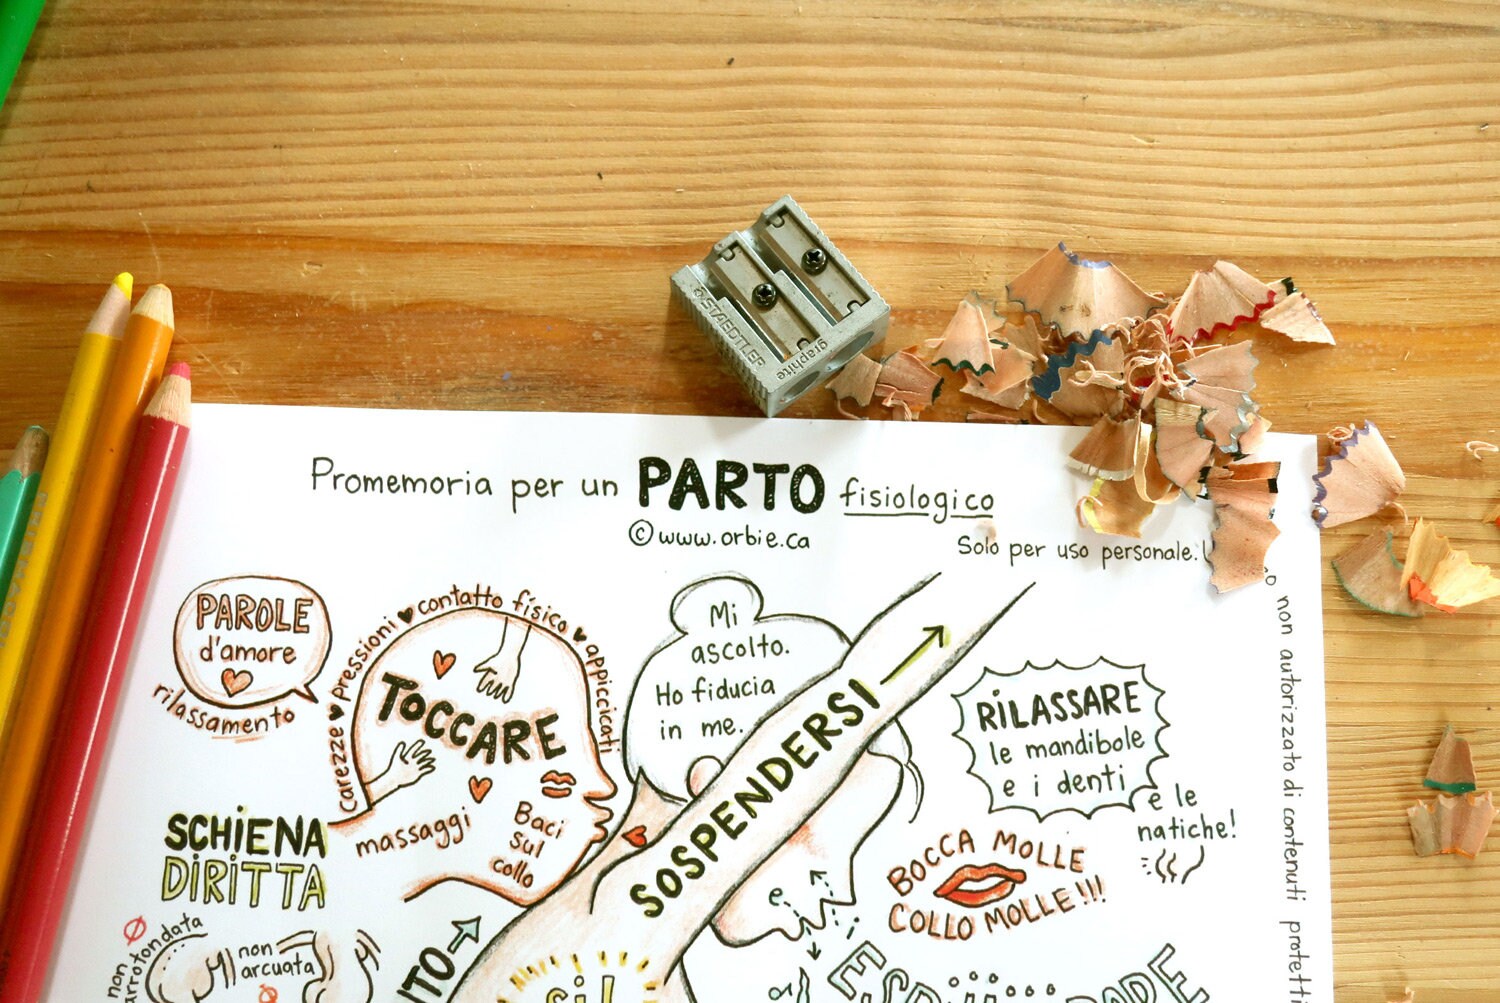 STAEDTLER
graphite
Promemoria per un PARTO fisiologico
© www.orbie.ca
Solo per uso personale.
non autorizzato di contenuti protetti
PAROLE
d'amore
rilassamento
carezze ♥ pressioni ♥ contatto físico ♥ appiccicati
TOCCARE
massaggi
Baci
sul
collo
Mi
ascolto.
Ho fiducia
in me.
SOSPENDERSI
RiLASSARE
le mandibole
e i denti
e le
natiche!
BOCCA MOLLE
COLLO MOLLE!!!
SCHiENA
DiRiTTA
non
arrotondata
non
arcuata
e
Si!